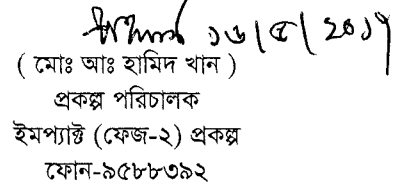 ১৬/৫/2০১৭
( মোঃ আঃ হামিদ খান )
প্রকল্প পরিচালক
ইমপ্যাক্ট (ফেজ-২) প্রকল্প
ফোন-৯৫৮৮৩৯২